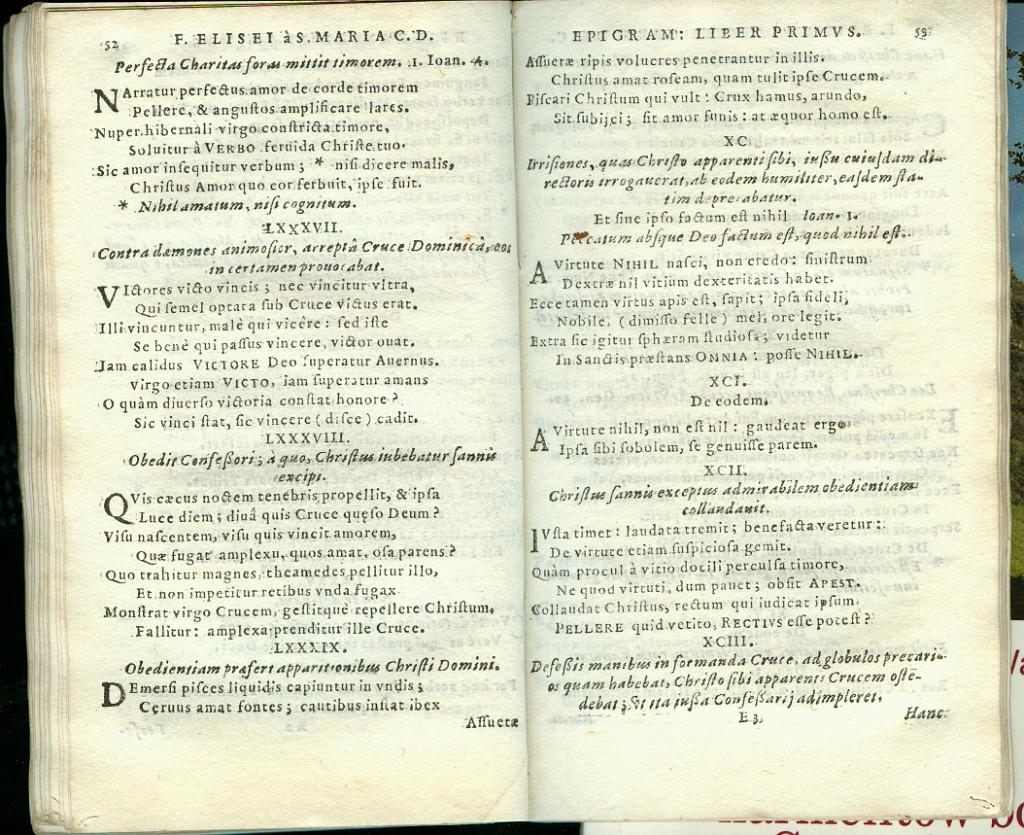 52 F. ELISEI à S. MARIA C. D.
Perfecta Charitas foras mittit timorem. 1. Ioan. 4.
NArratur perfectus amor de corde timorem
Pellere, & angustos amplificare lares.
Nuper hibernali virgo constricta timore,
Soluitur à VERBO feruida Christe tuo.
Sic amor insequitur verbum; * nisi dicere malis,
Christus Amor quo cor ferbuit, ipse fuit.
* Nihil amatum, nisi cognitum.
LXXXVII.
Contra dæmones animosior, arreptâ Cruce Dominicâ, eos
in certamen prouocabat.
VIctores victo vincis; nec vincitur vltra,
Qui semel optata sub Cruce victus erat.
Illi vincuntur, malè qui vicêre: sed iste
Se benè qui passus vincere, victor ouat.
Iam calidus VICTORE Deo superatur Auernus.
virgo etiam VICTO, iam superatur amans
O quàm diuerso victoria constat honore?
Sic vinci stat, sic vincere (disce) cadit.
LXXXVIII.
Obedit Confessori; à quo, Christus iubebatur sannis
excipi.
QVis cæcus noctem tenebris propellit, & ipsa
Luce diem; diuâ quis Cruce quęso Deum?
Visu nascentem, visu quis vincit amorem,
Quæ fugat amplexu, quos amat, osa parens?
Quo trahitur magnes, theamedes pellitur illo,
Et non impetitur retibus vnda fugax
Monstrat virgo Crucem, gestitque repellere Christum,
Fallitur: amplexa prenditur ille Cruce.
LXXXIX.
Obedientiam præfert apparitionibus Christi Domini.
DEmersi pisces liquidis capiuntur in vndis;
Ceruus amat fontes; cautibus instat ibex
Assuetæ
EPIGRAM: LIBER PRIMVS. 53
Assuetæ ripis volucres penetrantur in illis.
Christus amat roseam, quam tulit ipse Crucem.
Piscari Christum qui vult: Crux hamus, arundo,
Sit subijci; sit amor funis: at æquor homo est.
XC.
Irrisiones, quas Christo apparenti sibi, iussu cuiusdam di-
rectoris irrogauerat, ab eodem humiliter, easdem sta-
tim deprecabatur.
Et sine ipso factum est nihil Ioan. 1.
Peccatum absque Deo factum est, quod nihil est.
A Virtute NIHIL nasci, non credo: sinistrum
Dextræ nil vitium dexteritatis habet.
Ecce tamen virtus apis est, sapit; ipsa fideli,
Nobile, (dimisso felle) mel, ore legit.
Extra sic igitur sphæram studiosa; videtur
In Sanctis præstans OMNIA: posse NIHIL.
XCI.
De eodem.
A Virtute nihil, non est nil: gaudeat ergo
Ipsa sibi sobolem, se genuisse parem.
XCII.
Christus sannis exceptus admirabilem obedientiam
collaudauit.
IVsta timet: laudata tremit; benefacta veretur:
De virtute etiam suspiciosa gemit.
Quàm procul à vitio docili perculsa timore,
Ne quod virtuti, dum pauet; obsit APEST.
Collaudat Christus, rectum qui iudicat ipsum.
PELLERE quid vetito, RECTIVS esse potest?
XCIII.
Defessis manibus in formanda Cruce, ad globulos precari-
os quam habebat, Christo sibi apparenti Crucem oste-
debat; Sit ita iussa Confessarij adimpleret.
E 3 Hanc